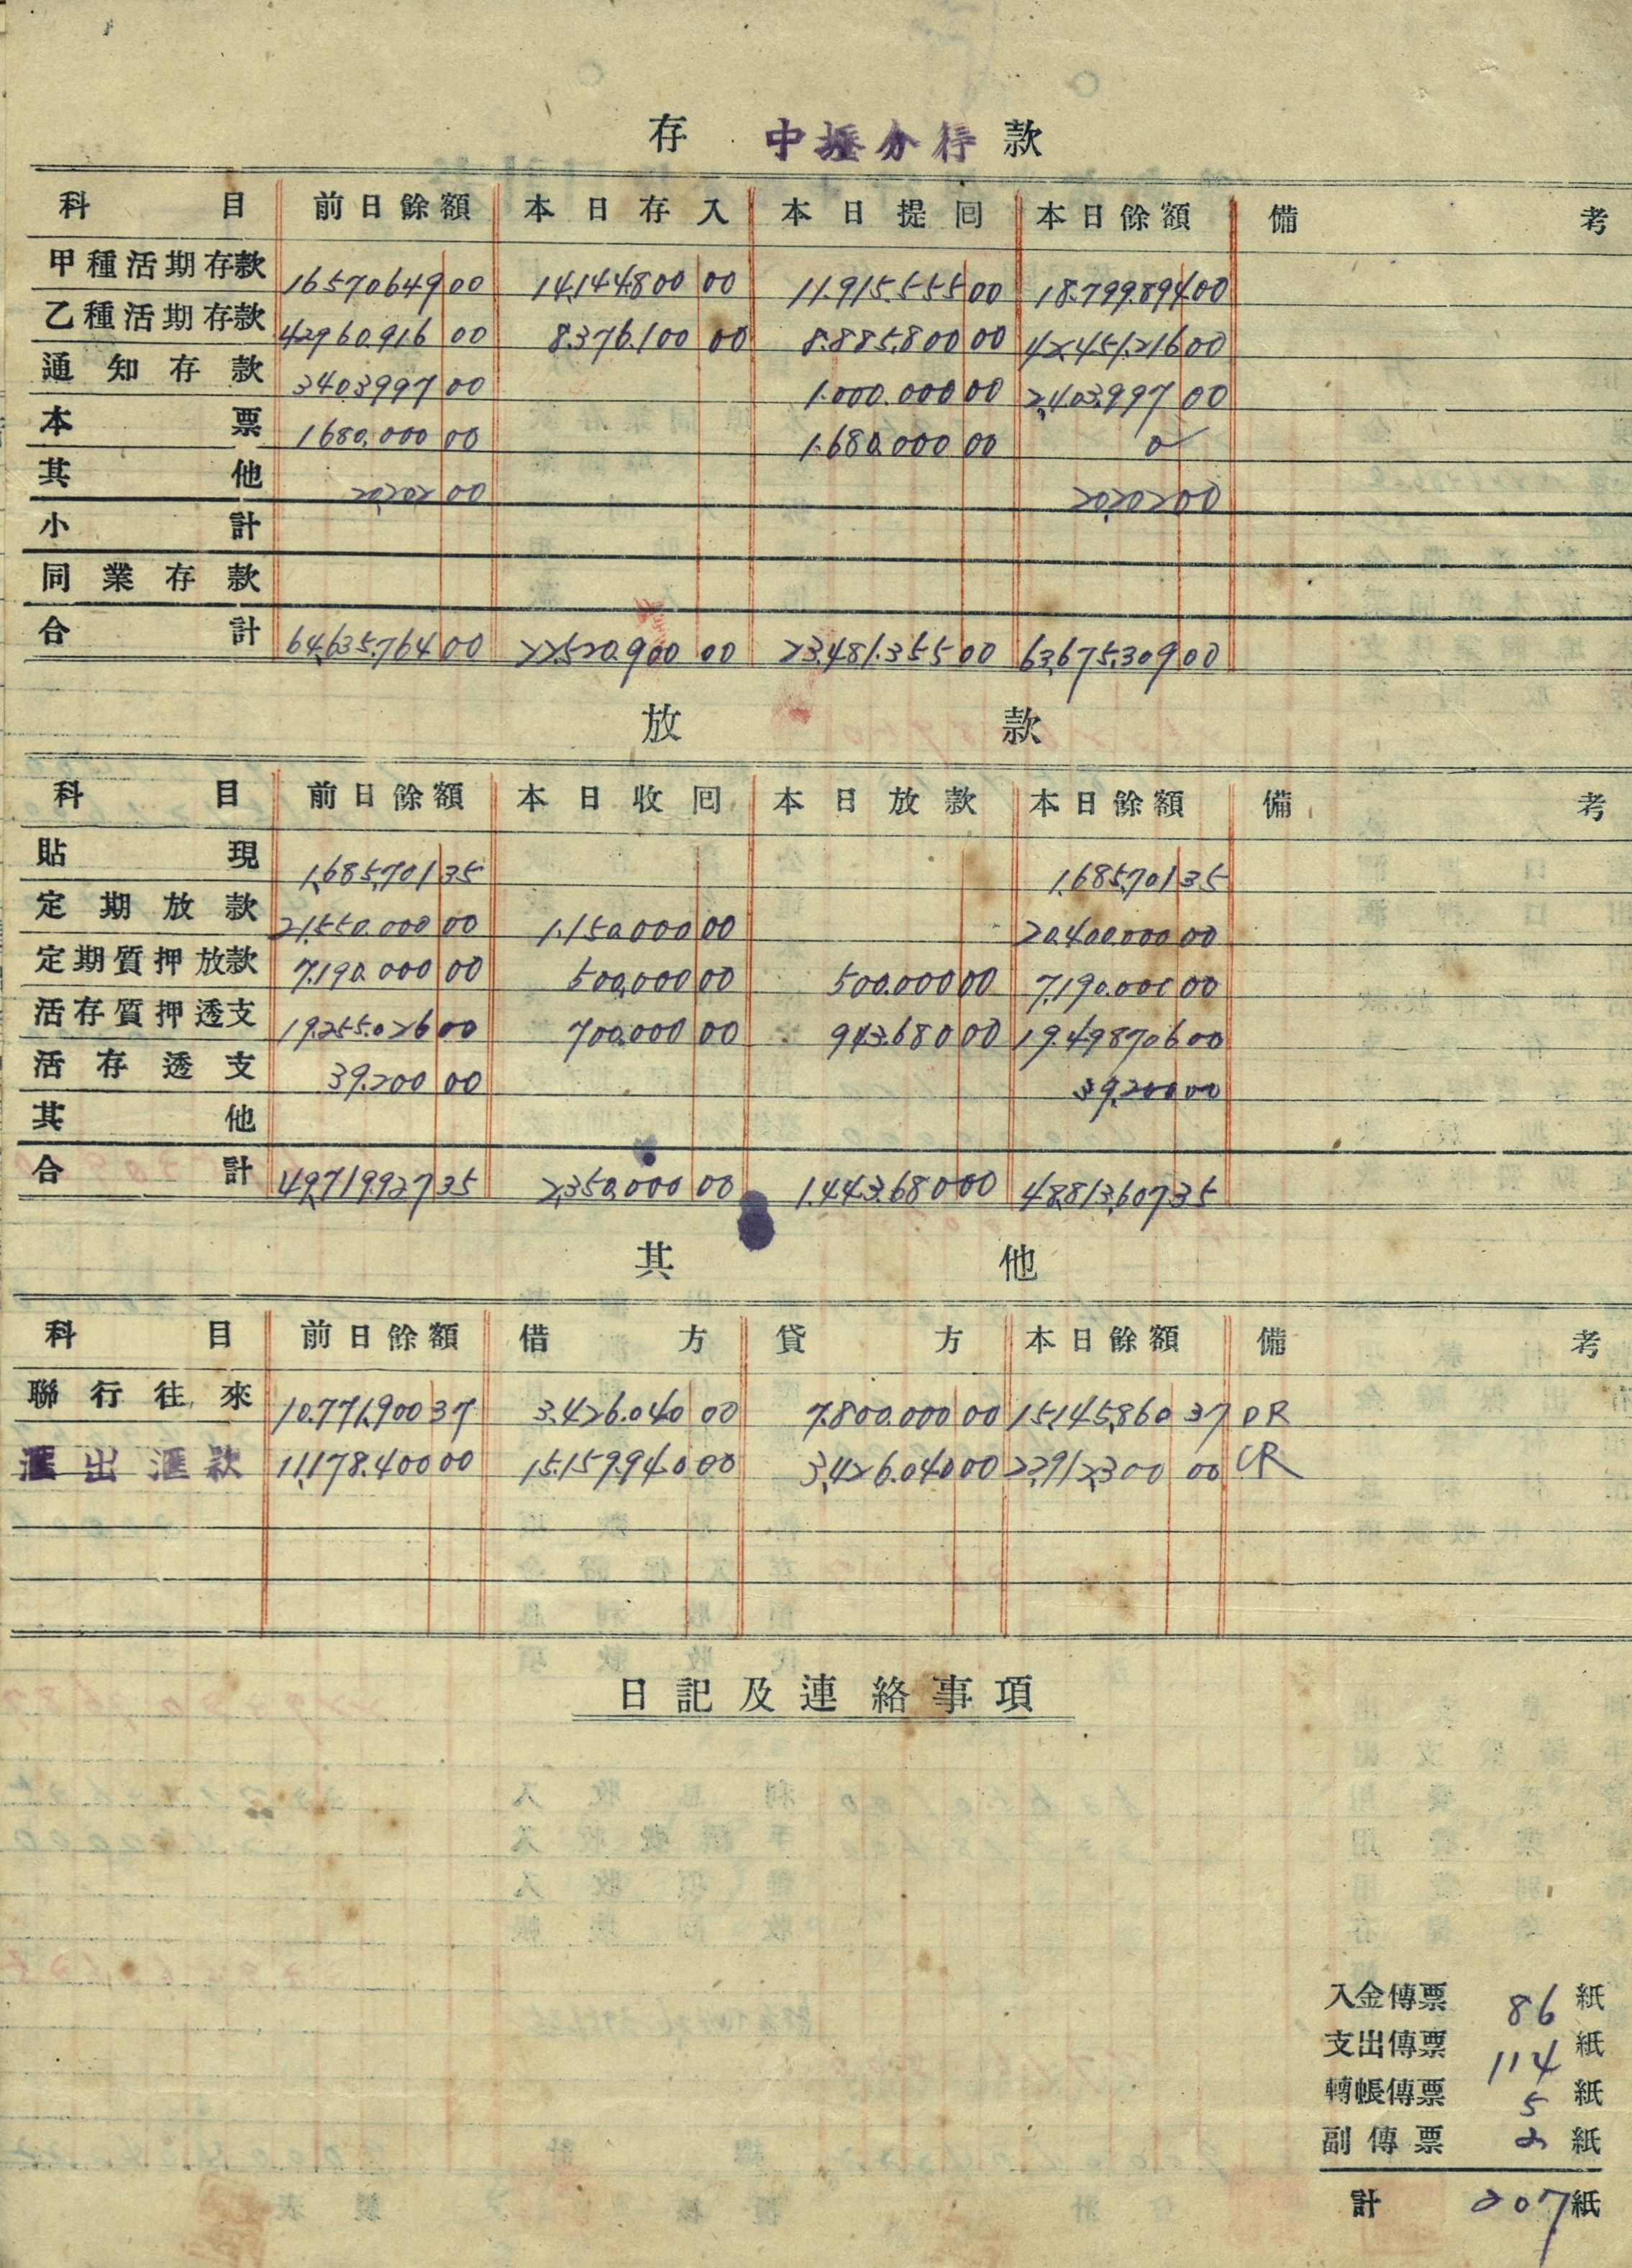 存 中壢分行 款
科目 前日餘額 本日存入 本日提囘 本日餘額 備考
甲種活期存款 16570649 00 14,144,800 00 11,915,555 00 18,799,894 00
乙種活期存款 42960,916 00 8,376,100 00 8,885,800 00 42,451,216 00
通知存款 3403997 00 1,000,000 00 2,403,997 00
本票 1680,000 00 1,680,000 00 0
其他 20,202 00 20,202 00
小計
同業存款
合計 64,635,764 00 22,520,900 00 23,481,355 00 63,675,309 00
放款
科目 前日餘額 本日收囘 本日放款 本日餘額 備考
貼現 1,685,701 35 1,685,701 35
定期放款 21,550,000 00 1,150,000 00 20,400,000 00
定期質押放款 7,190,000 00 500,000 00 500,000 00 7,190,000 00
活存質押透支 19,255,026 00 700,000 00 943,680 00 19,498,706 00
活存透支 39,200 00 39,200 00
其他
合計 49,719,927 35 2,350,000 00 1,443,680 00 48,813,607 35
其他
科目 前日餘額 借方 貸方 本日餘額 備考
聯行往來 10,771,900 37 3,426,040 00 7,800,000 00 15,145,860 37 DR
滙出滙款 11,178,400 00 15,159,940 00 3,426,040 00 22,912,300 00 CR
日記及連絡事項
入金傳票 86 紙
支出傳票 114 紙
轉帳傳票 5 紙
副傳票 2 紙
計 207 紙